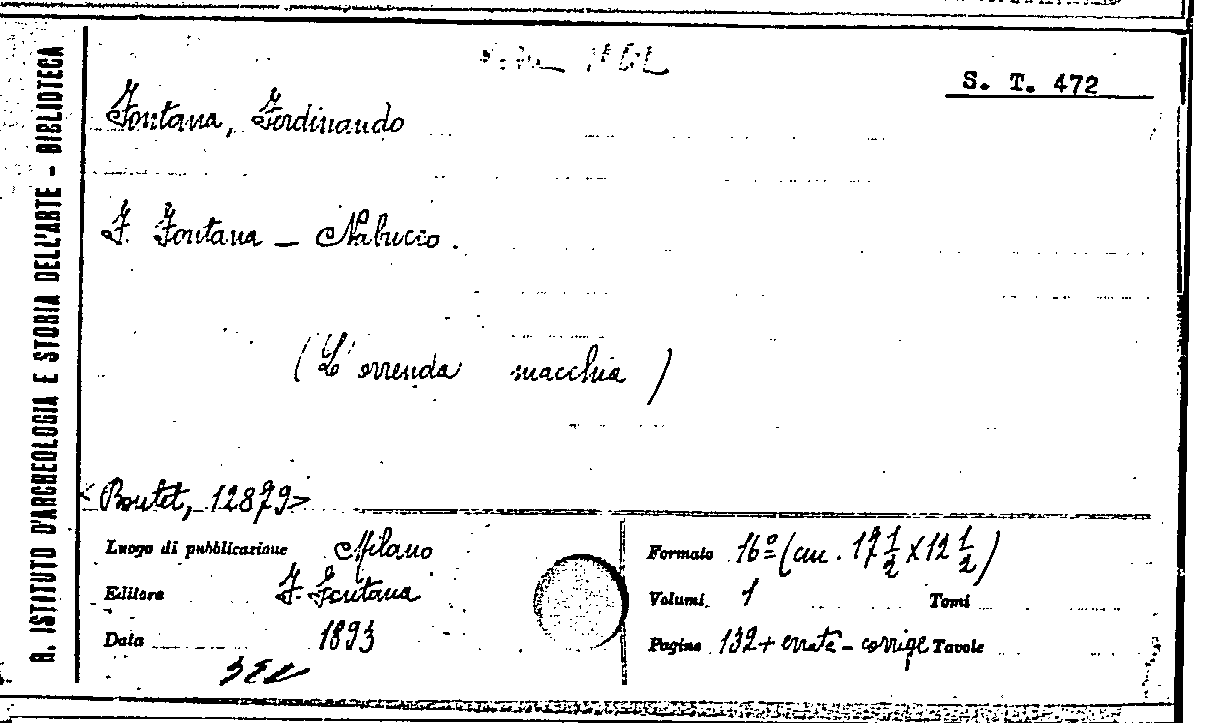 R. ISTITUTO D'ARCHEOLOGIA E STORIA DELL'ARTE - BIBLIOTECA
S. T. 472
Fontana, Ferdinando
F. Fontana - Nabucco.
(L'orrenda macchia)
<Boutet, 12879>
Luogo di pubblicazione Milano
Editore F. Fontana
Data 1893
Formato 16º (cm. 17 1/2 X 12 1/2)
Volumi 1 Tomi
Pagine 132 + errata-corrige Tavole